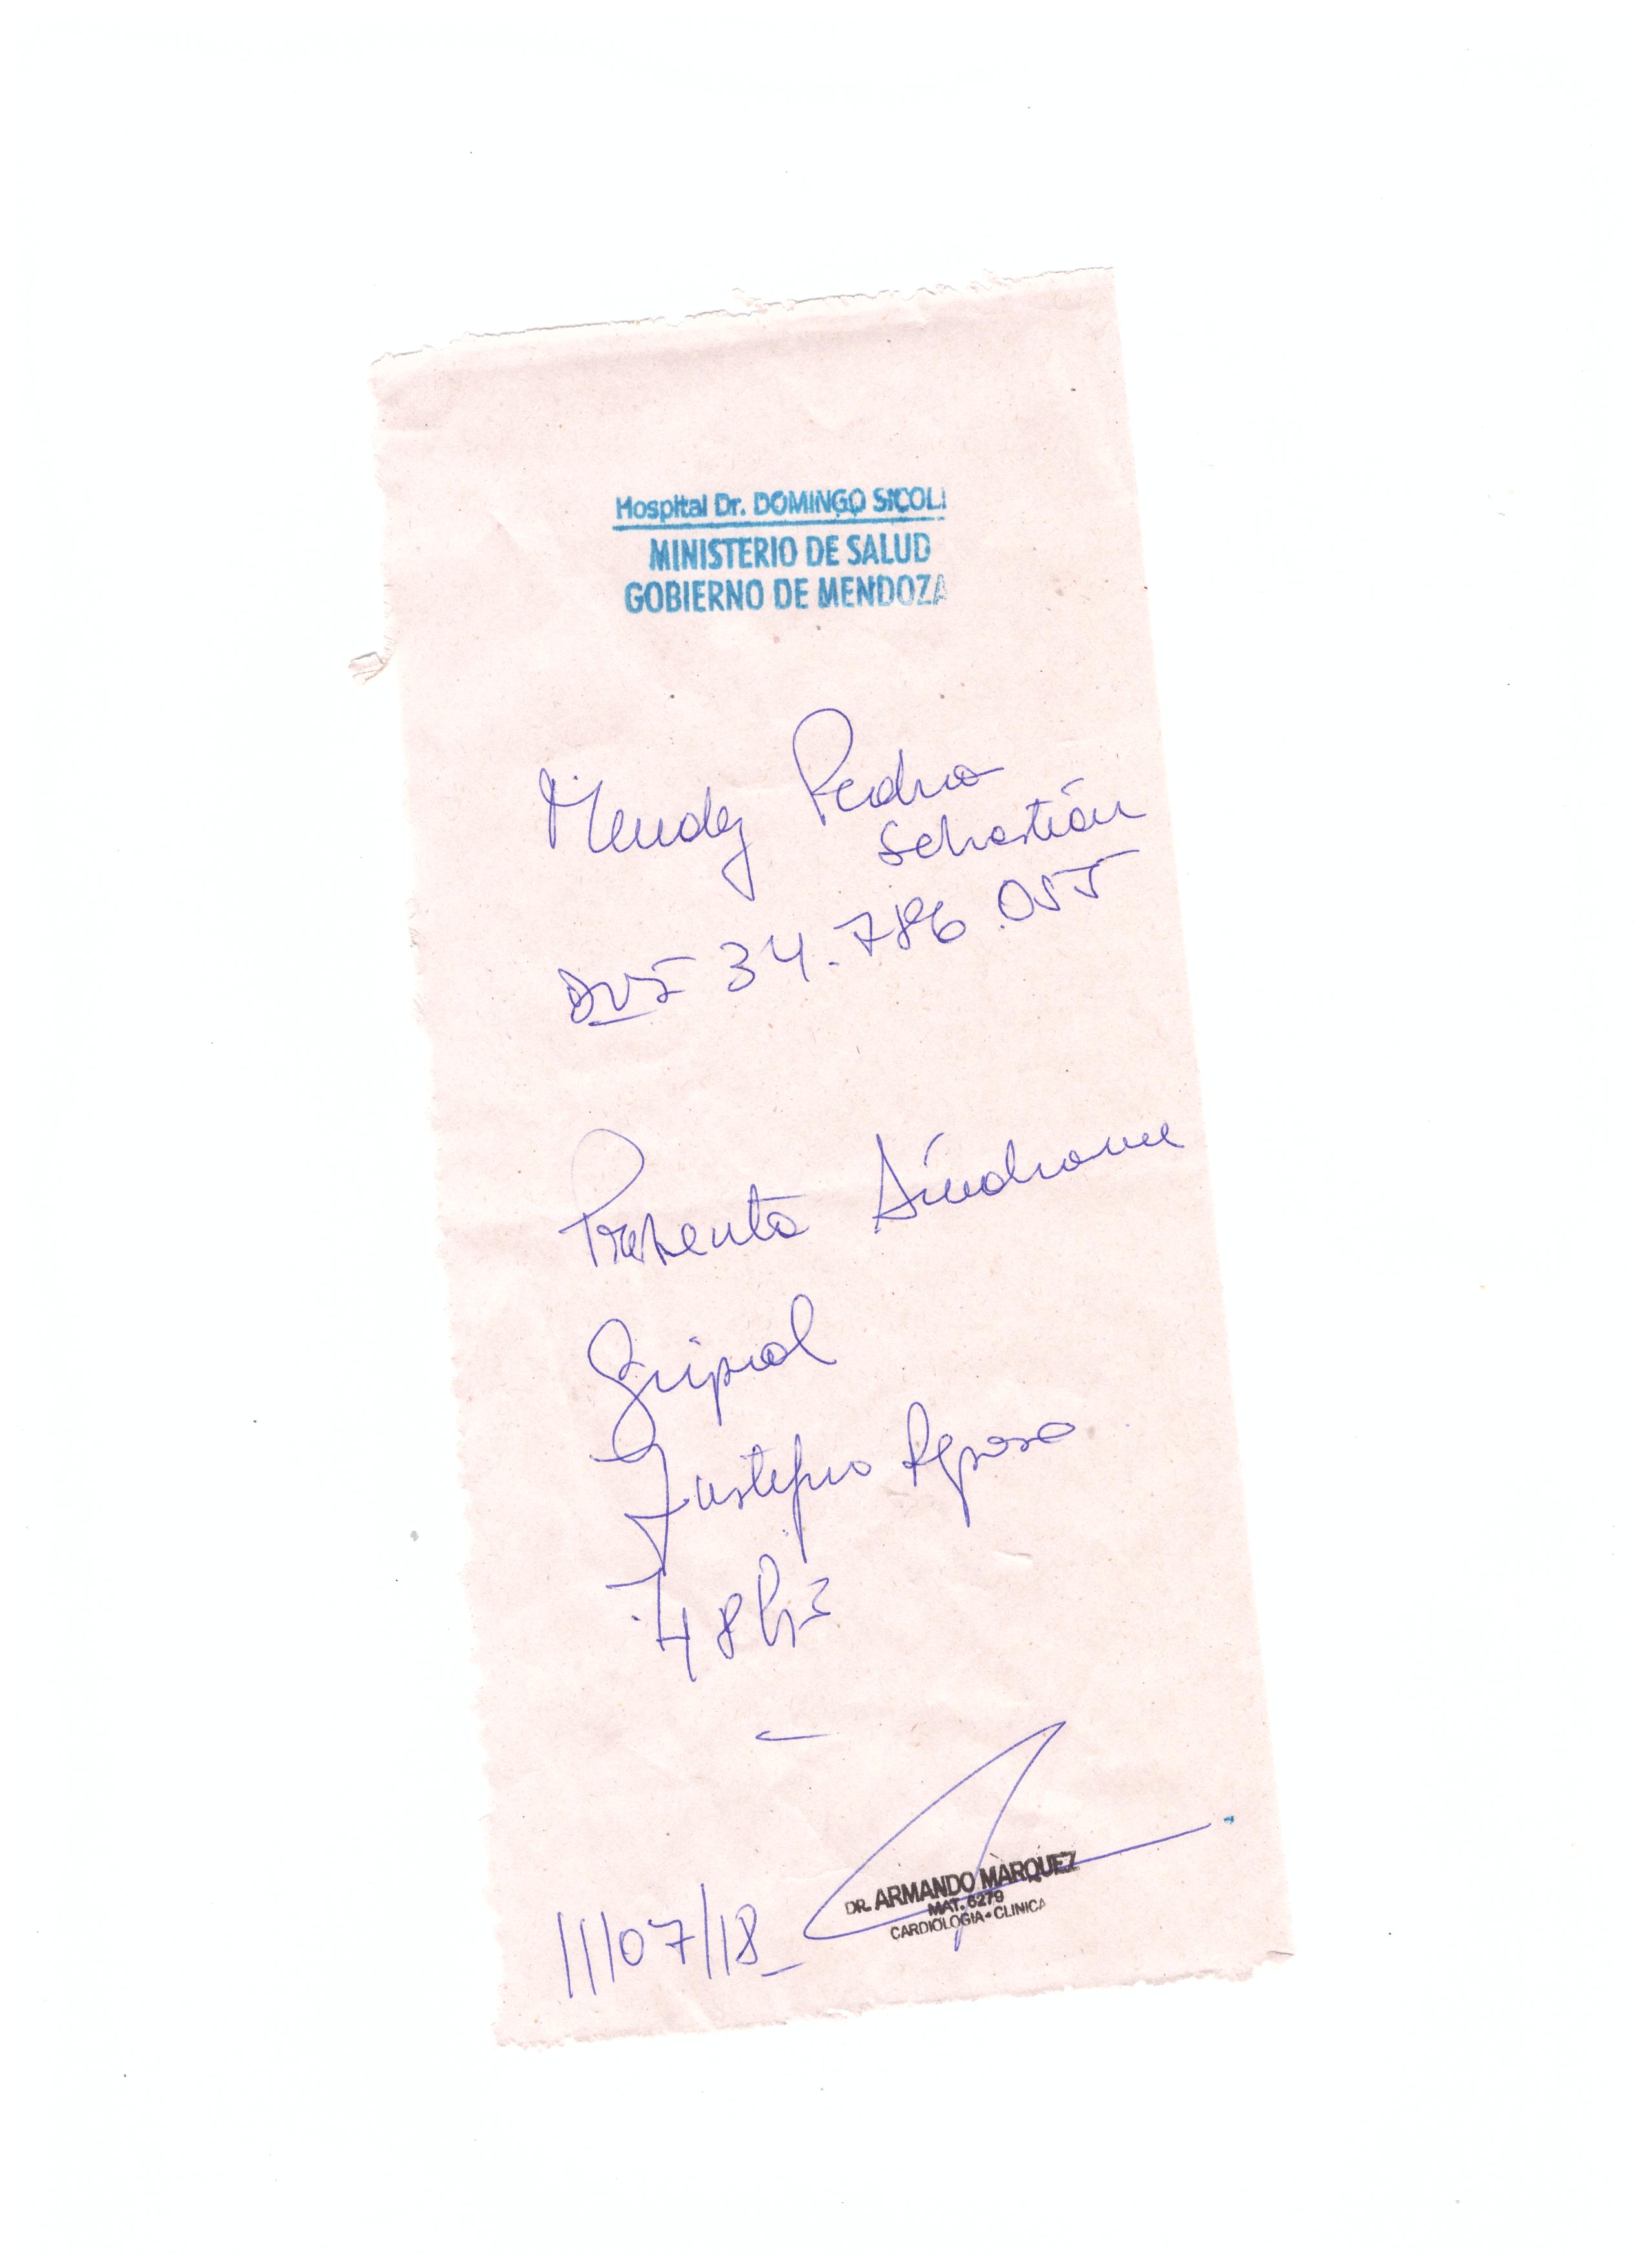 Hospital Dr. DOMINGO SICOLI
MINISTERIO DE SALUD
GOBIERNO DE MENDOZA
Mendez Pedro
Sebastián
DNI 34.786.055
Presenta Síndrome
Gripal
Justifico Reposo
48hs
11/07/18
DR. ARMANDO MARQUEZ
MAT. 6279
CARDIOLOGIA - CLINICA